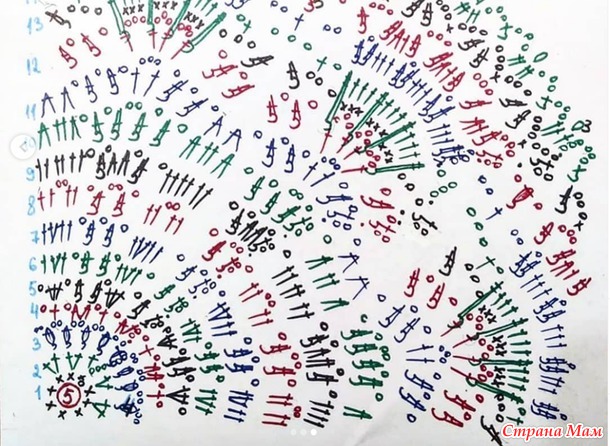 13
12
11
10
9
8
7
6
5
4
3
2
1
5
Страна Мам